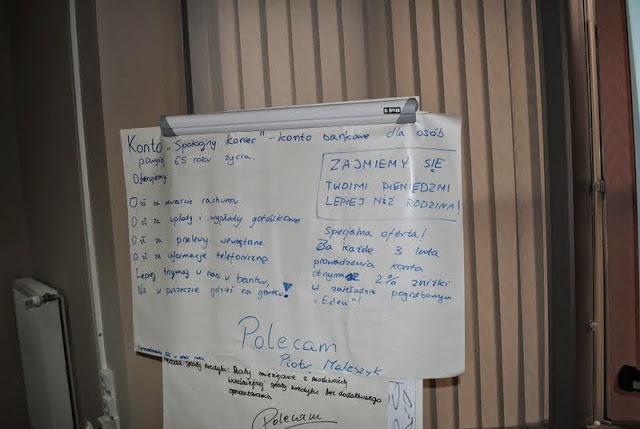 Konto „Spokojny koniec" - konto bankowe dla osób
powyżej 65 roku życia.
Oferujemy:
0 zł za otwarcie rachunku
0 zł za wpłaty i wypłaty gotówkowe
0 zł za przelewy wewnętrzne
0 zł za informacje telefoniczne
Lepiej trzymaj u nas w banku,
Niż w puszeczce gdzieś na ganku!
ZAJMIEMY SIĘ
TWOIMI PIENIĘDZMI
LEPIEJ NIŻ RODZINA!
Specjalna oferta!
Za każde 3 lata
prowadzenia konta
otrzymasz 2% zniżki
w zakładzie pogrzebowym
„Eden"!
Polecam
Piotr Maleszyk
spłaty kredytu: Raty miesięczne z możliwością
wcześniejszej spłaty kredytu bez dodatkowego
oprocentowania
Polecam